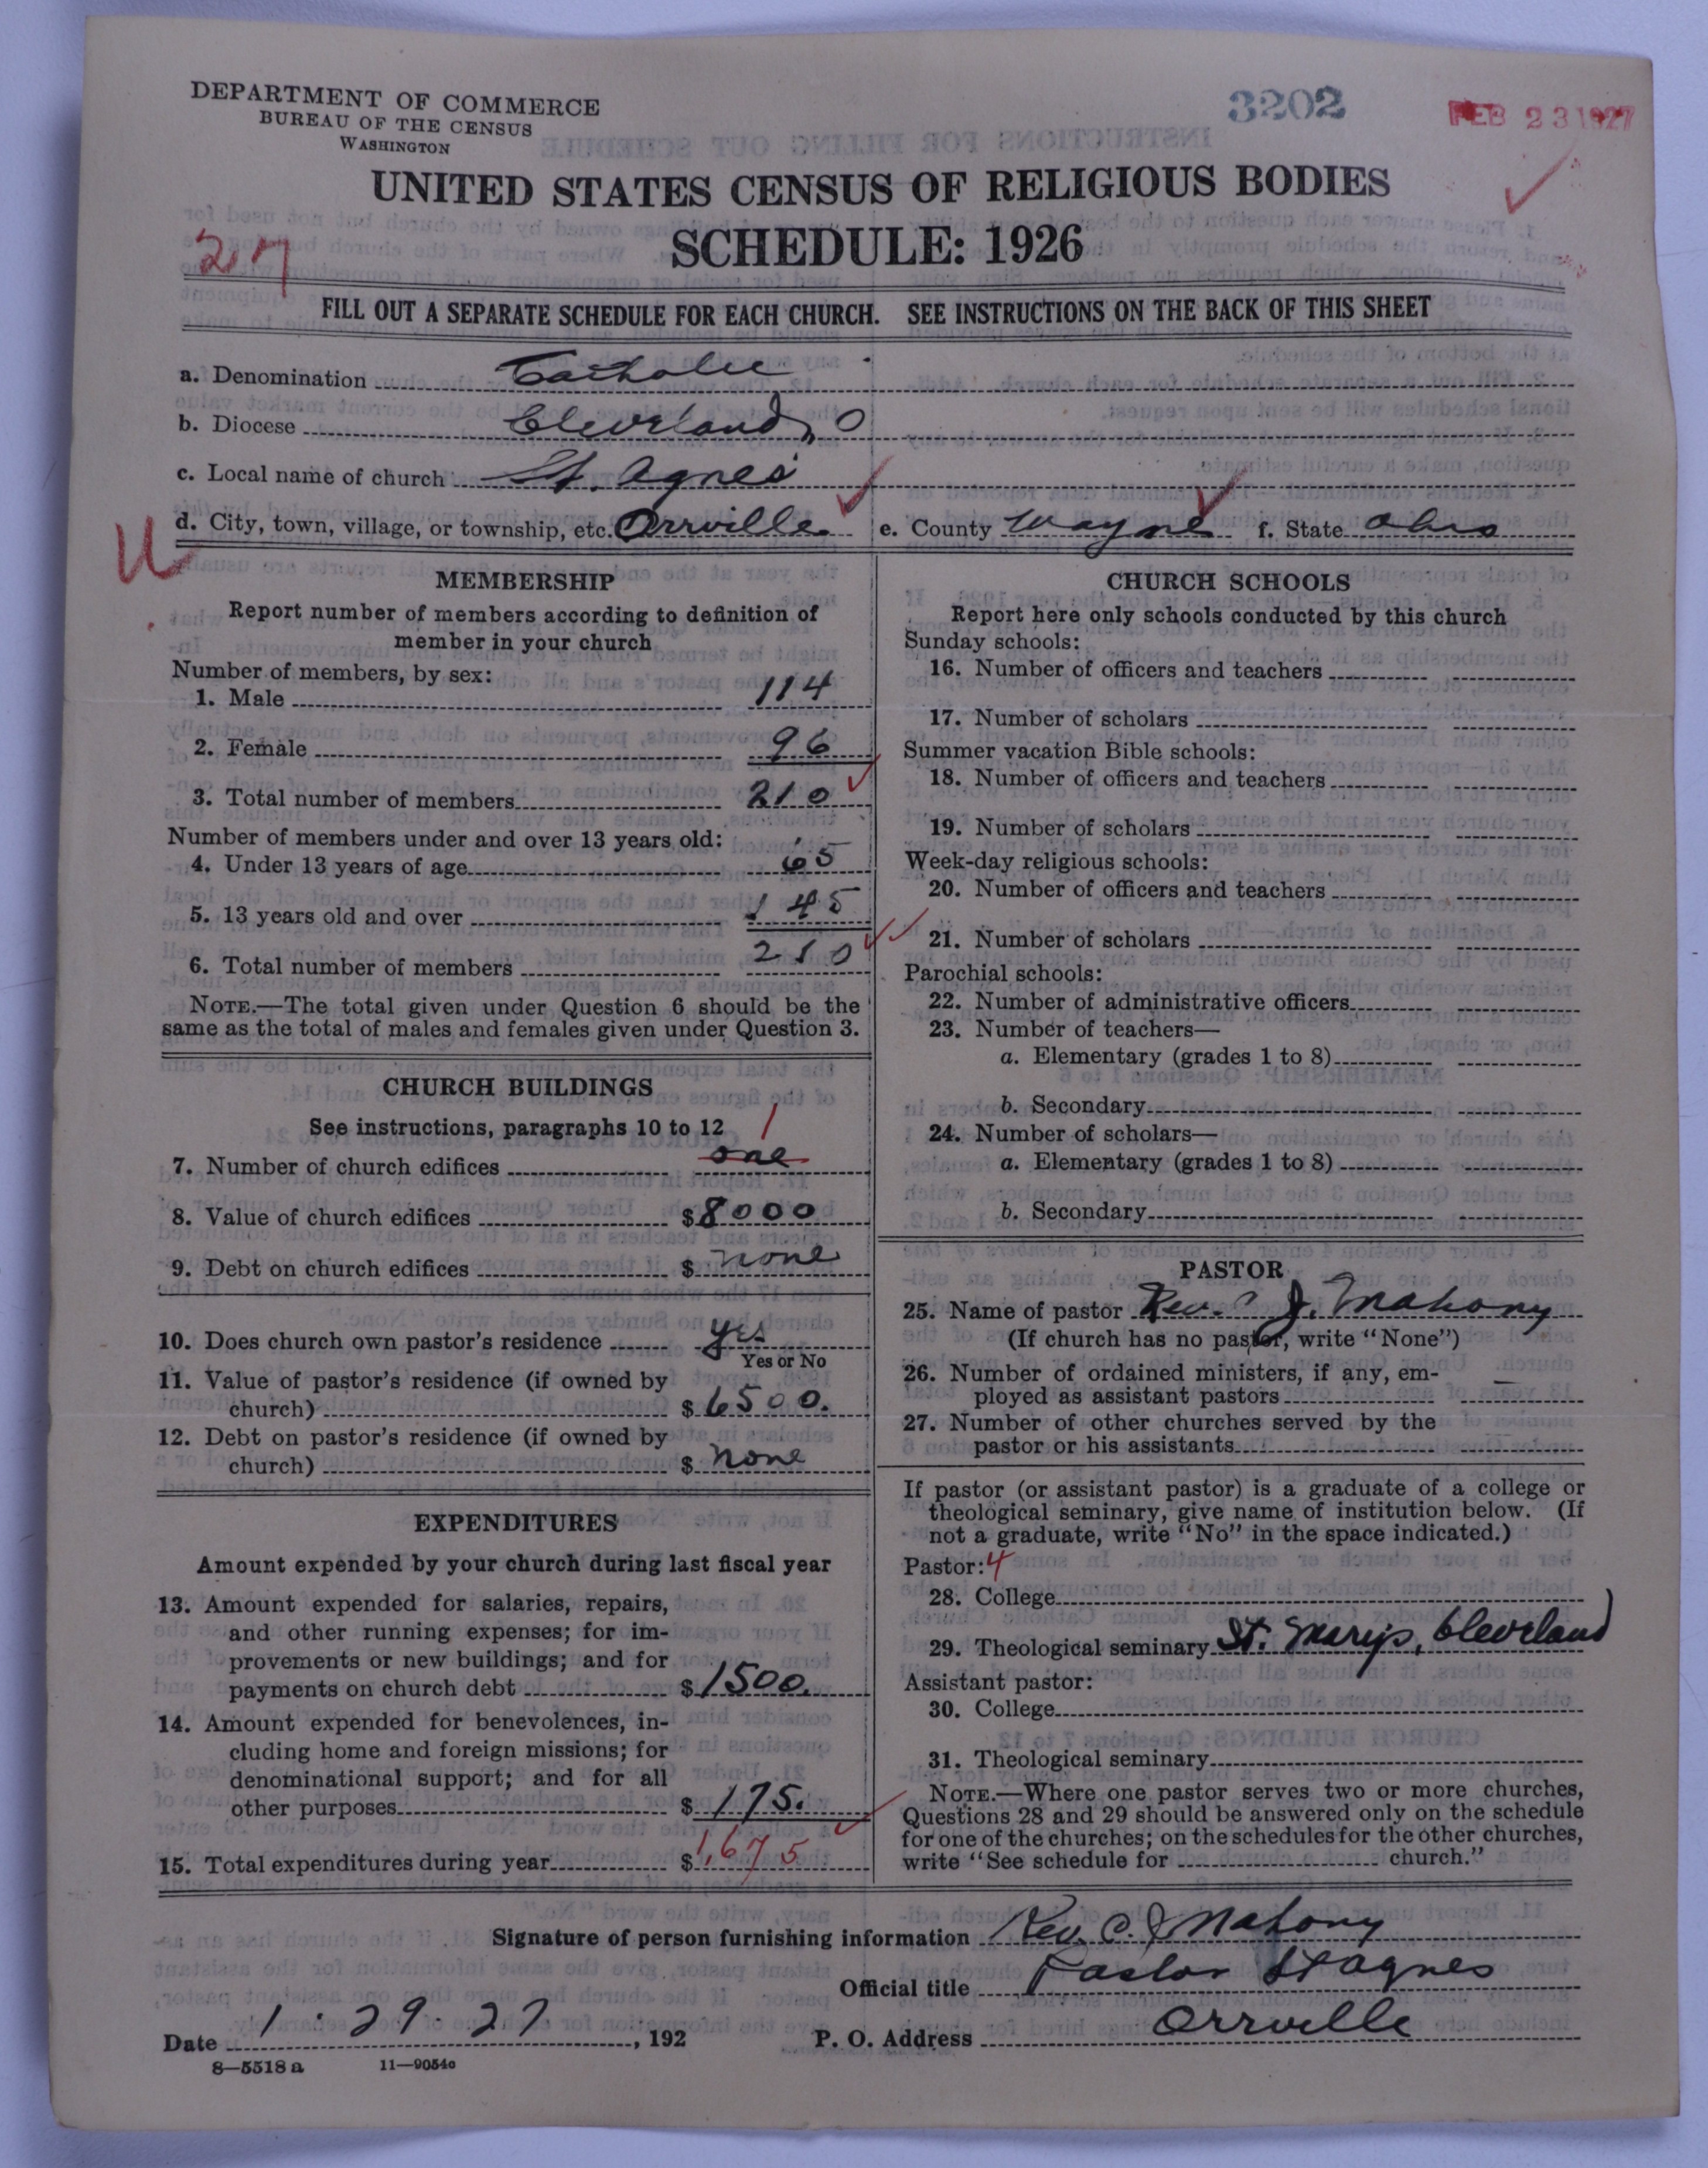 DEPARTMENT OF COMMERCE
BUREAU OF THE CENSUS
WASHINGTON
3202
FEB 23 1927
UNITED STATES CENSUS OF RELIGIOUS BODIES
SCHEDULE: 1926
27
FILL OUT A SEPARATE SCHEDULE FOR EACH CHURCH. SEE INSTRUCTIONS ON THE BACK OF THIS SHEET
a. Denomination Catholic
b. Diocese Cleveland, O
c. Local name of church St. Agnes
d. City, town, village, or township, etc. Orrville e. County Wayne f. State Ohio
U
MEMBERSHIP
Report number of members according to definition of
member in your church
Number of members, by sex:
1. Male 114
2. Female 96
3. Total number of members 210
Number of members under and over 13 years old:
4. Under 13 years of age 65
5. 13 years old and over 145
6. Total number of members 210
NOTE.—The total given under Question 6 should be the
same as the total of males and females given under Question 3.
CHURCH BUILDINGS
See instructions, paragraphs 10 to 12
1
7. Number of church edifices one
8. Value of church edifices $8000
9. Debt on church edifices $ none
10. Does church own pastor's residence yes
Yes or No
11. Value of pastor's residence (if owned by
church) $6500.
12. Debt on pastor's residence (if owned by
church) $ none
EXPENDITURES
Amount expended by your church during last fiscal year
13. Amount expended for salaries, repairs,
and other running expenses; for im-
provements or new buildings; and for
payments on church debt $1500.
14. Amount expended for benevolences, in-
cluding home and foreign missions; for
denominational support; and for all
other purposes $ 175.
15. Total expenditures during year $1,675
CHURCH SCHOOLS
Report here only schools conducted by this church
Sunday schools:
16. Number of officers and teachers
17. Number of scholars
Summer vacation Bible schools:
18. Number of officers and teachers
19. Number of scholars
Week-day religious schools:
20. Number of officers and teachers
21. Number of scholars
Parochial schools:
22. Number of administrative officers
23. Number of teachers—
a. Elementary (grades 1 to 8)
b. Secondary
24. Number of scholars—
a. Elementary (grades 1 to 8)
b. Secondary
PASTOR
25. Name of pastor Rev. C J. Mahony
(If church has no pastor, write "None")
26. Number of ordained ministers, if any, em-
ployed as assistant pastors —
27. Number of other churches served by the
pastor or his assistants
If pastor (or assistant pastor) is a graduate of a college or
theological seminary, give name of institution below. (If
not a graduate, write "No" in the space indicated.)
Pastor: 4
28. College
29. Theological seminary St. Marys, Cleveland
Assistant pastor:
30. College
31. Theological seminary
NOTE.—Where one pastor serves two or more churches,
Questions 28 and 29 should be answered only on the schedule
for one of the churches; on the schedules for the other churches,
write "See schedule for church."
Signature of person furnishing information Rev. C. J Mahony
Official title Pastor St Agnes
Date 1. 29. 27, 192 P. O. Address Orrville
8—5518 a 11—9054c